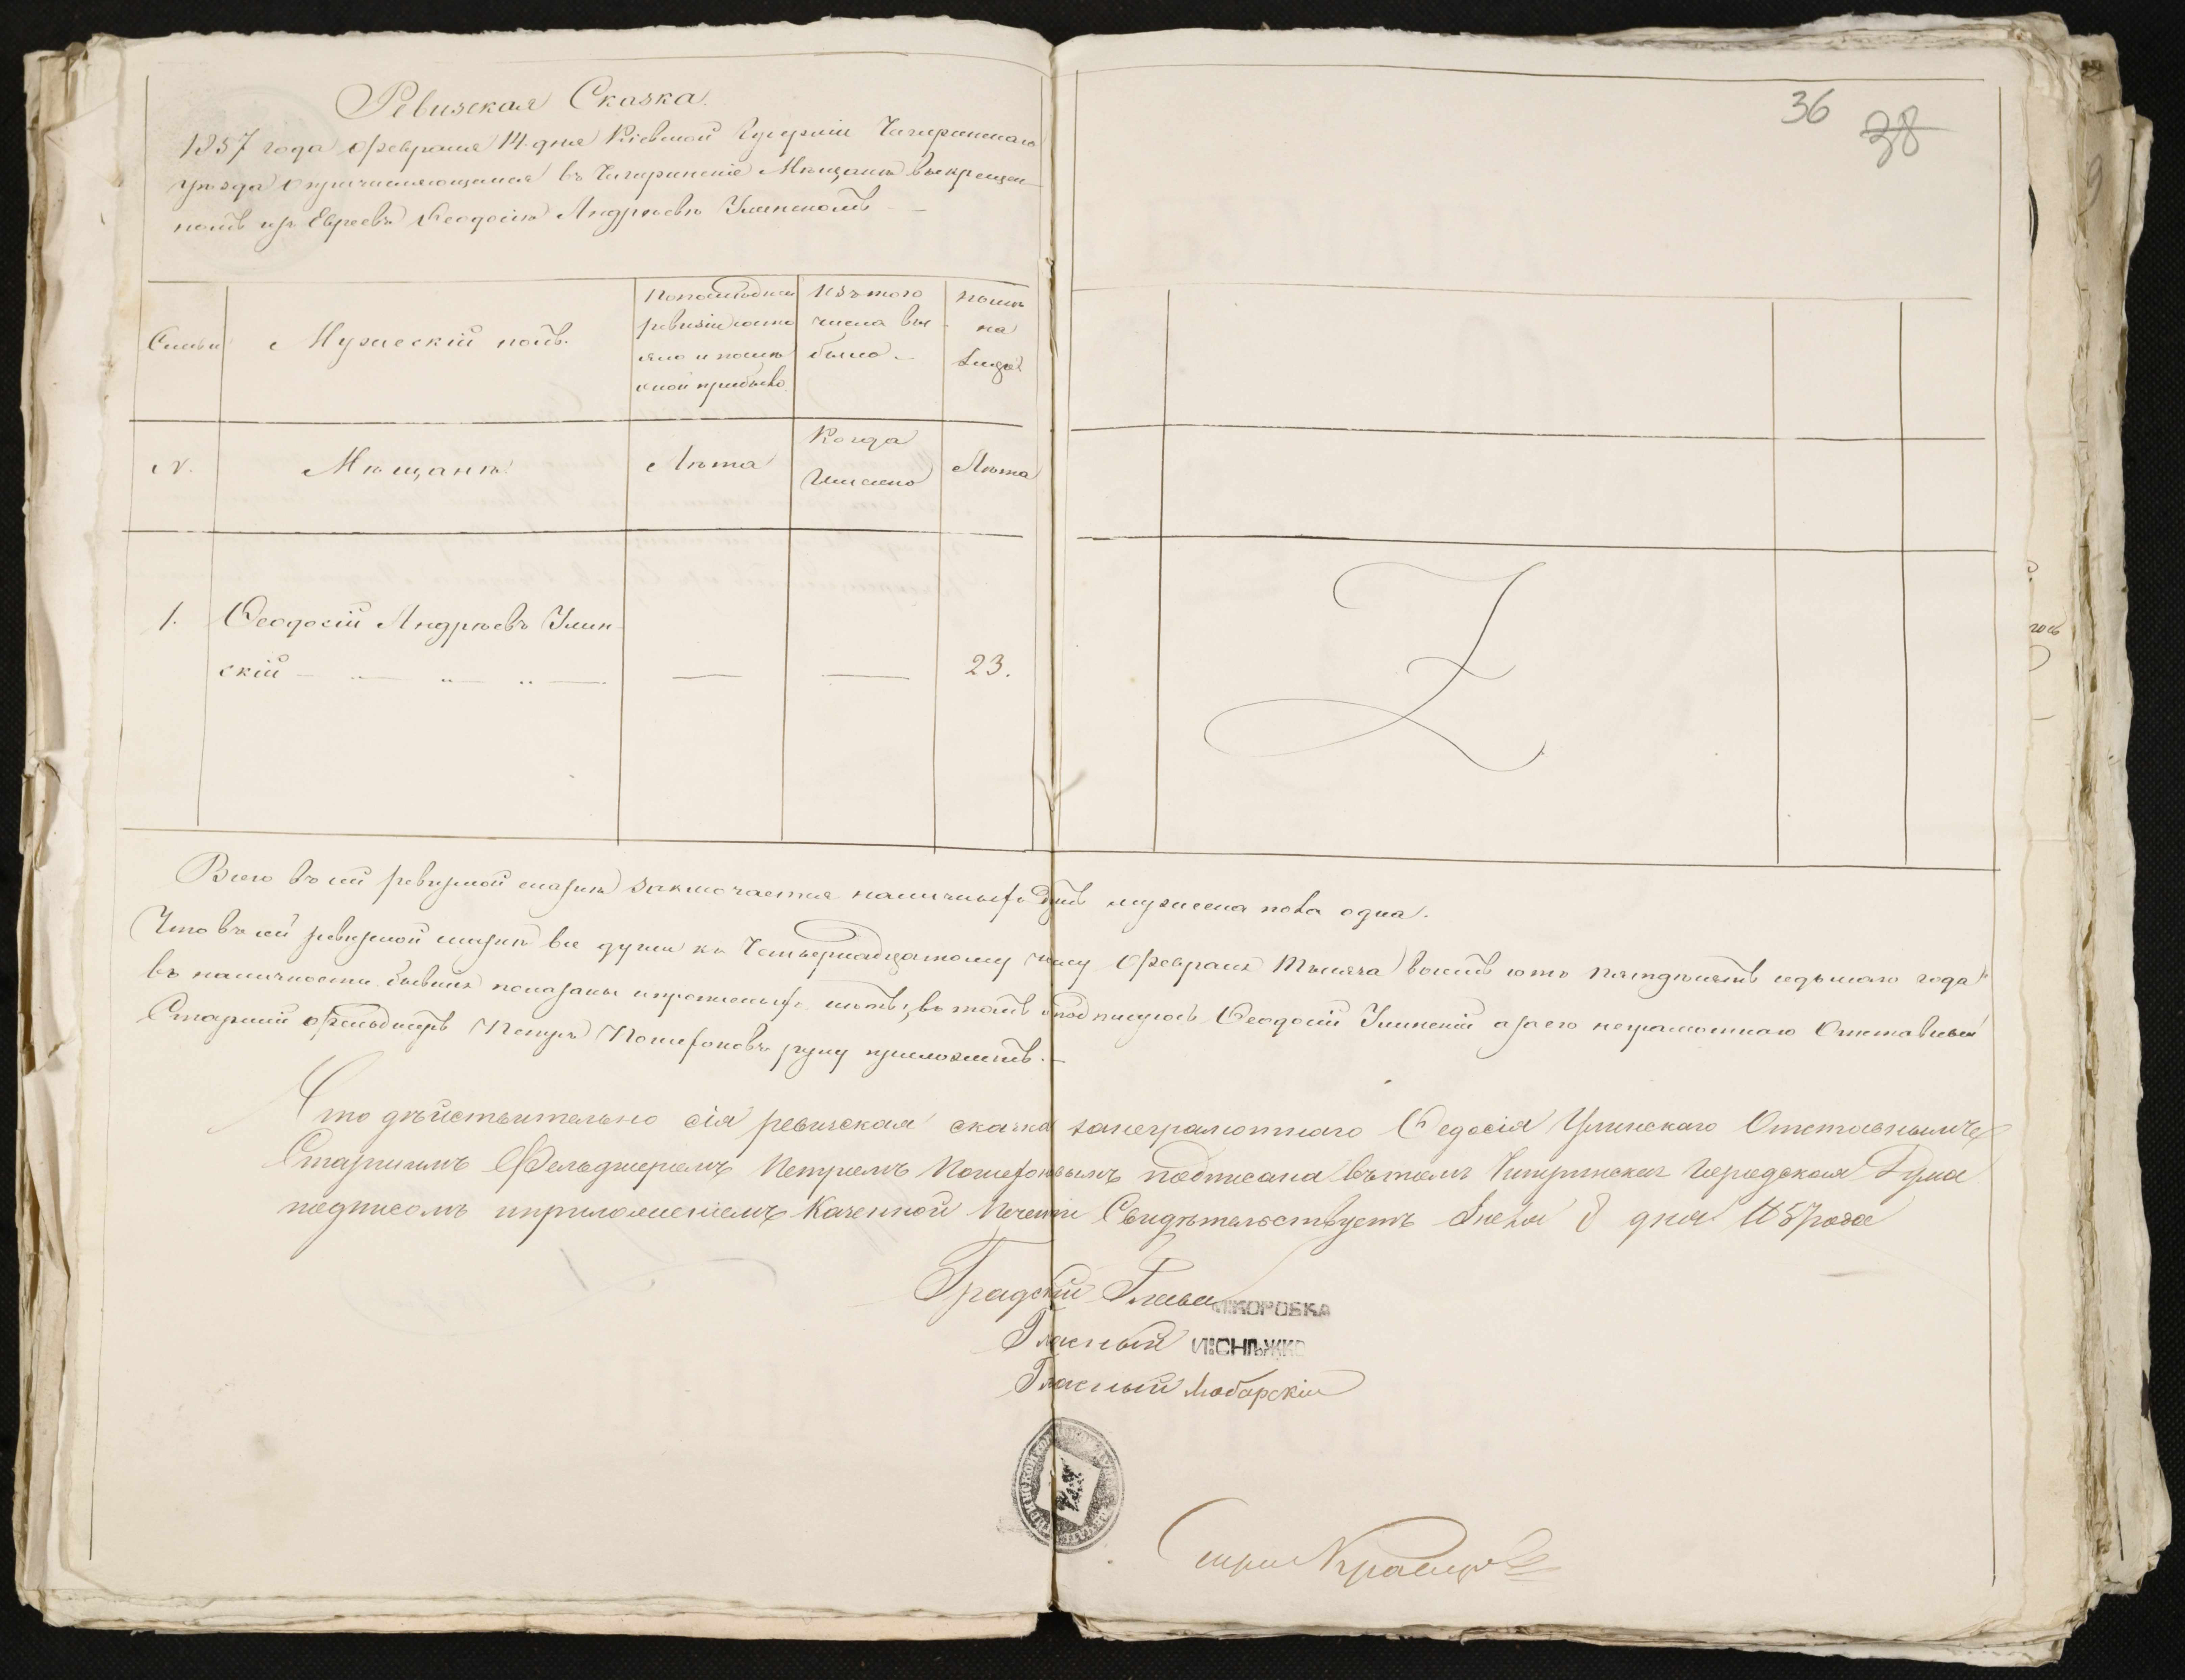 36
38
Ревизская Сказка.
1857 года февраля 14 дня Кіевской Губерніи Чигиринскаго
уѣзда о причисляющемся въ Чигиринскіе Мѣщане выкрещен-
номъ изъ Евреевъ Феодосіи Андрѣевѣ Улинскомъ
Семьи
Мужескій полъ.
По последней ревизіи состояло и после оной прибыло
Изъ того числа выбыло
Ныне на лицо
N.
Мѣщане
Лѣта
Когда Именно
Лѣта
1. Феодосій Андрѣевъ Улин-
скій 23.
Всего въ сей ревизской сказке заключается наличныхъ душъ мужеска пола одна.
Что въ сей ревизской сказке все души къ Четырнадцатому числу Февраля Мѣсяца восемь сотъ пятдесятъ седьмаго года
въ наличности бывшія показаны и прописныхъ нѣтъ, въ томъ подписуюсь Феодосій Улинскій а за его неграмотнаго Отставный
Старшій фельдшеръ Петръ руку приложилъ.
Что дѣйствительно сія ревизская сказка за неграмотнаго Федосія Улинскаго Отставнымъ
Старшимъ Фельдшеромъ Петромъ подписана въ томъ Чигиринская Городская Дума
подписомъ и приложеніемъ Казенной Печати Свидѣтельствуетъ 8 дня 1857 года
Градскій Глава КОРОБКА
Гласный И:СНѢЖКО
Гласный